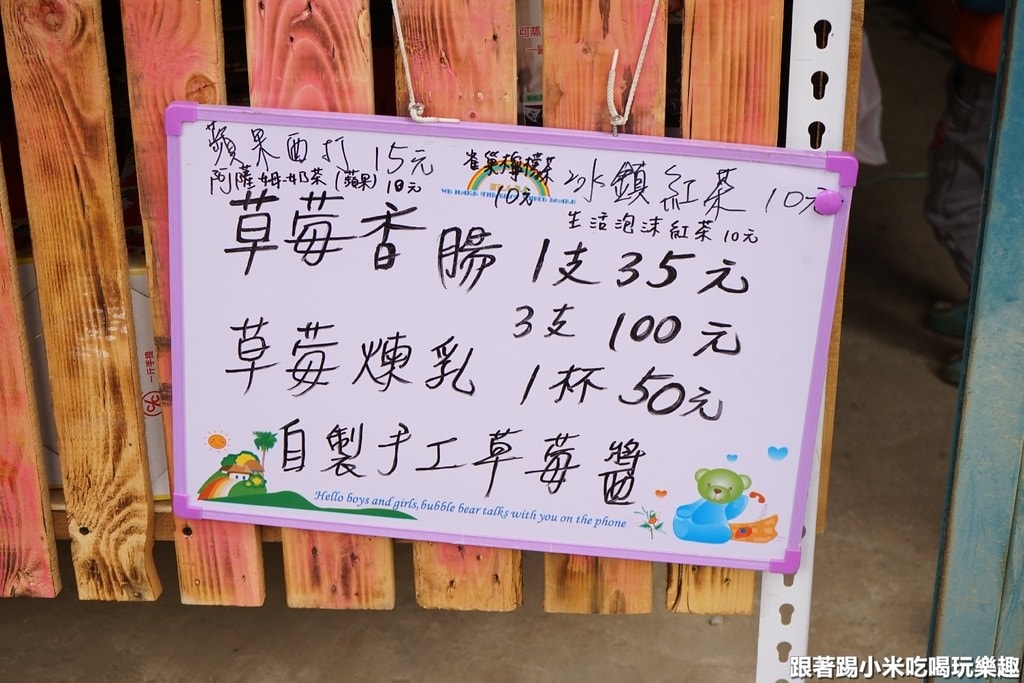 蘋果西打 15元
雀巢檸檬茶
10元
冰鎮紅茶 10元
阿薩姆奶茶(蘋果)10元
生活泡沫紅茶10元
草莓香腸 1支35元
3支 100元
草莓煉乳 1杯50元
自製手工草莓醬
Hello boys and girls,bubble bear talks with you on the phone
一斤手提
跟著踢小米吃喝玩樂趣